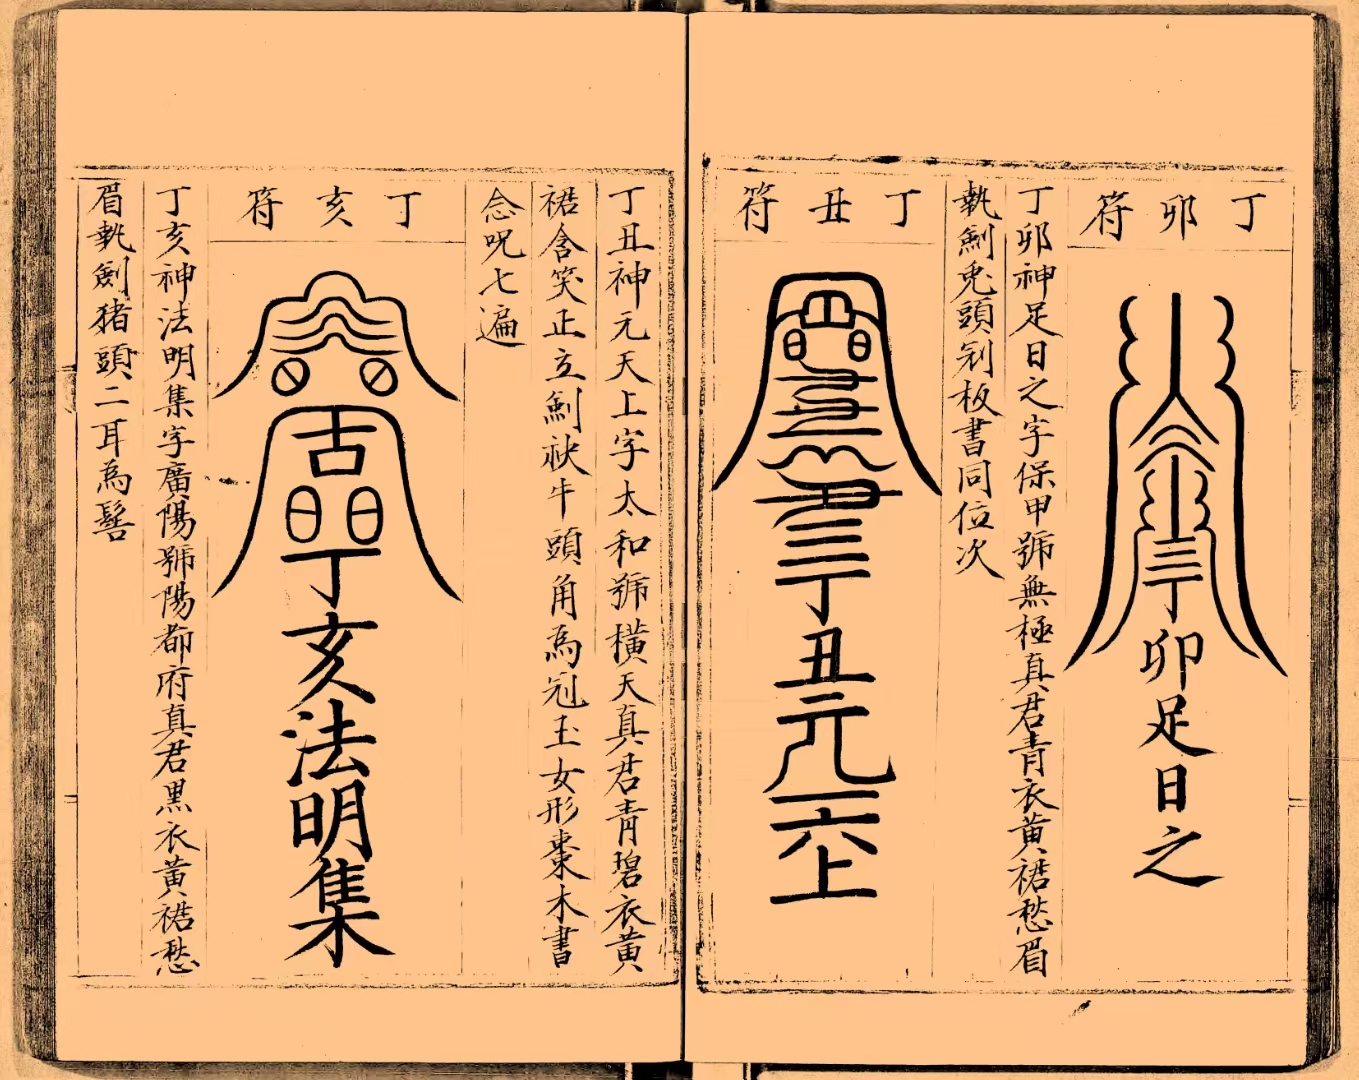 丁卯符
丁卯足日之
丁卯神足日之字保甲號無極真君青衣黃裙愁眉
執劍兎頭剁板書同位次
丁丑符
丁丑元一六上
丁丑神元天上字太和號橫天真君青碧衣黃
裙含笑正立劍袂牛頭角為冠玉女形棗木書
念呪七遍
丁亥符
丁亥法明集
丁亥神法明集字廣陽號陽都府真君黑衣黃裙愁
眉執劍猪頭二耳為髻